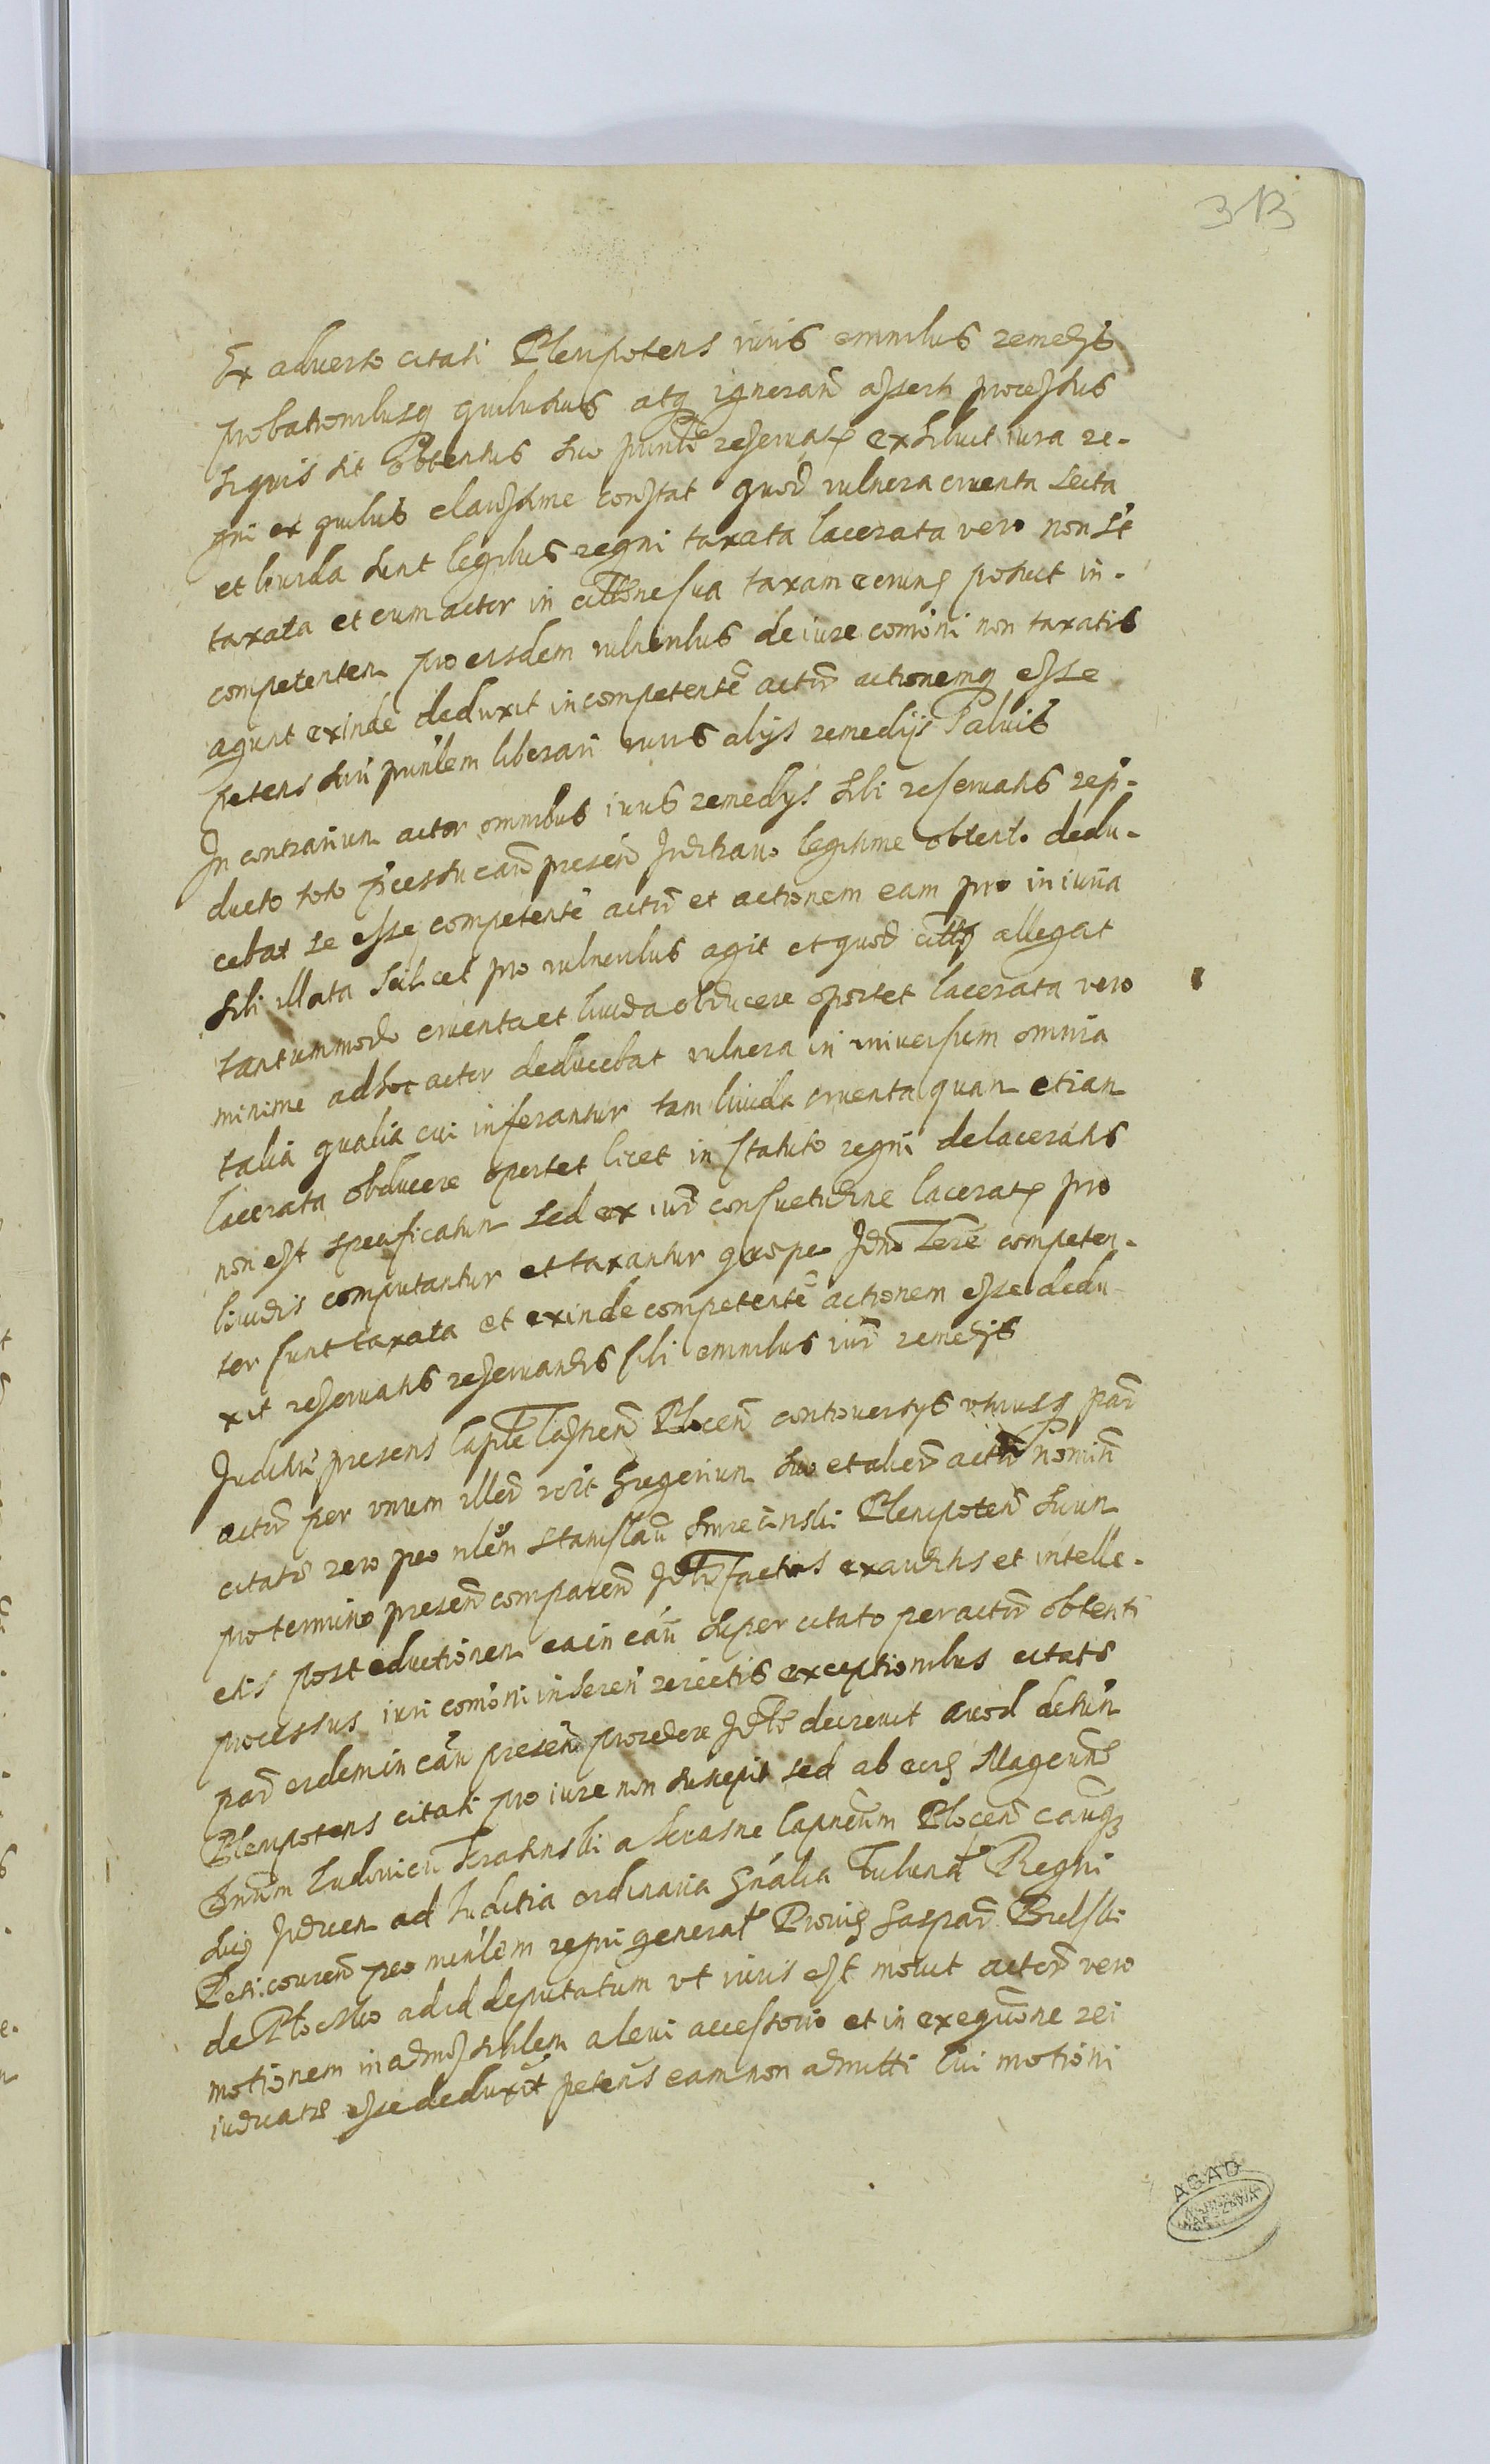 313
Ex adverso citati Plenipotens iuris omnibus remedijs
probationibusq quibusuis atq ignoran asserti processus
siquis sit obtentus suo prinli reseruatis exhibuit iura re-
gni ex quibus clarissime constat quod vulnera cruenta secta
et liuida sunt legibus regni taxata lacerata vero non st
taxata et cum actor in cittone sua taxam eorung posuit in-
competenter pro eisdem vulneribus de iure comoni non taxatis
agunt exinde deduxit incompetente actore actionemq esse
petens sui prinlem liberari iuris alijs remedijs Saluis
In contrarium actor omnibus iuris remedijs sibi reseruatis rep-
ducto toto pcessu can presen Juditiario legitime obtento dedu-
cebat se esse competente actore et actionem eam pro iniuria
sibi illata scilicet pro vulneribus agit et quod citts allegat
tantummodo cruenta et liuida obducere oportet lacerata vero
minime ad hoc actor deducebat vulnera in vniuersum omnia
talia qualia cui inferantur tam liuida cruenta quam etiam
lacerata obducere oportet licet in statuto regni de laceratis
non est specificatum sed ex iuris consuetudine laceratis pro
liuidis computantur et taxantur competen-
ter sunt taxata et exinde competente actionem esse dedu-
xit reseruatis reseruandis sibi omnibus iuris remedijs
Juditiu presens Capte Castren Plocen controuersijs vtriusq par
actore per vnum illor Gregorium suo et alior actor nomin
citato vero peo nlem Stanislau Plenipoten suum
pro termino presen comparen Jdtr factas exauditis et intelle-
ctis post eductionem ea in cau super citato per actore obtenti
processus iuri comoni inheren reiectis exceptionibus citato
par eidem in cau presen procedere Jdto decreuit quod detin
Plenipotens citati pro iure non suscepit sed ab eog Magcum
Gnum Ludouicu Krasinski a Krasne Capneum Plocen caung
ad Juditia ordinaria Gnalia Tribunal Regni
Petricouien peo minlem regni general Prouis Gaspar Bielski
de Plocko ad id deputatum vt iuris est mouit actor vero
motionem inadmissibilem a leui accessorio et in exeqtione rei
iudicato esse deduxit petens eam non admitti Cui motioni
AGAD
WARSZAWA